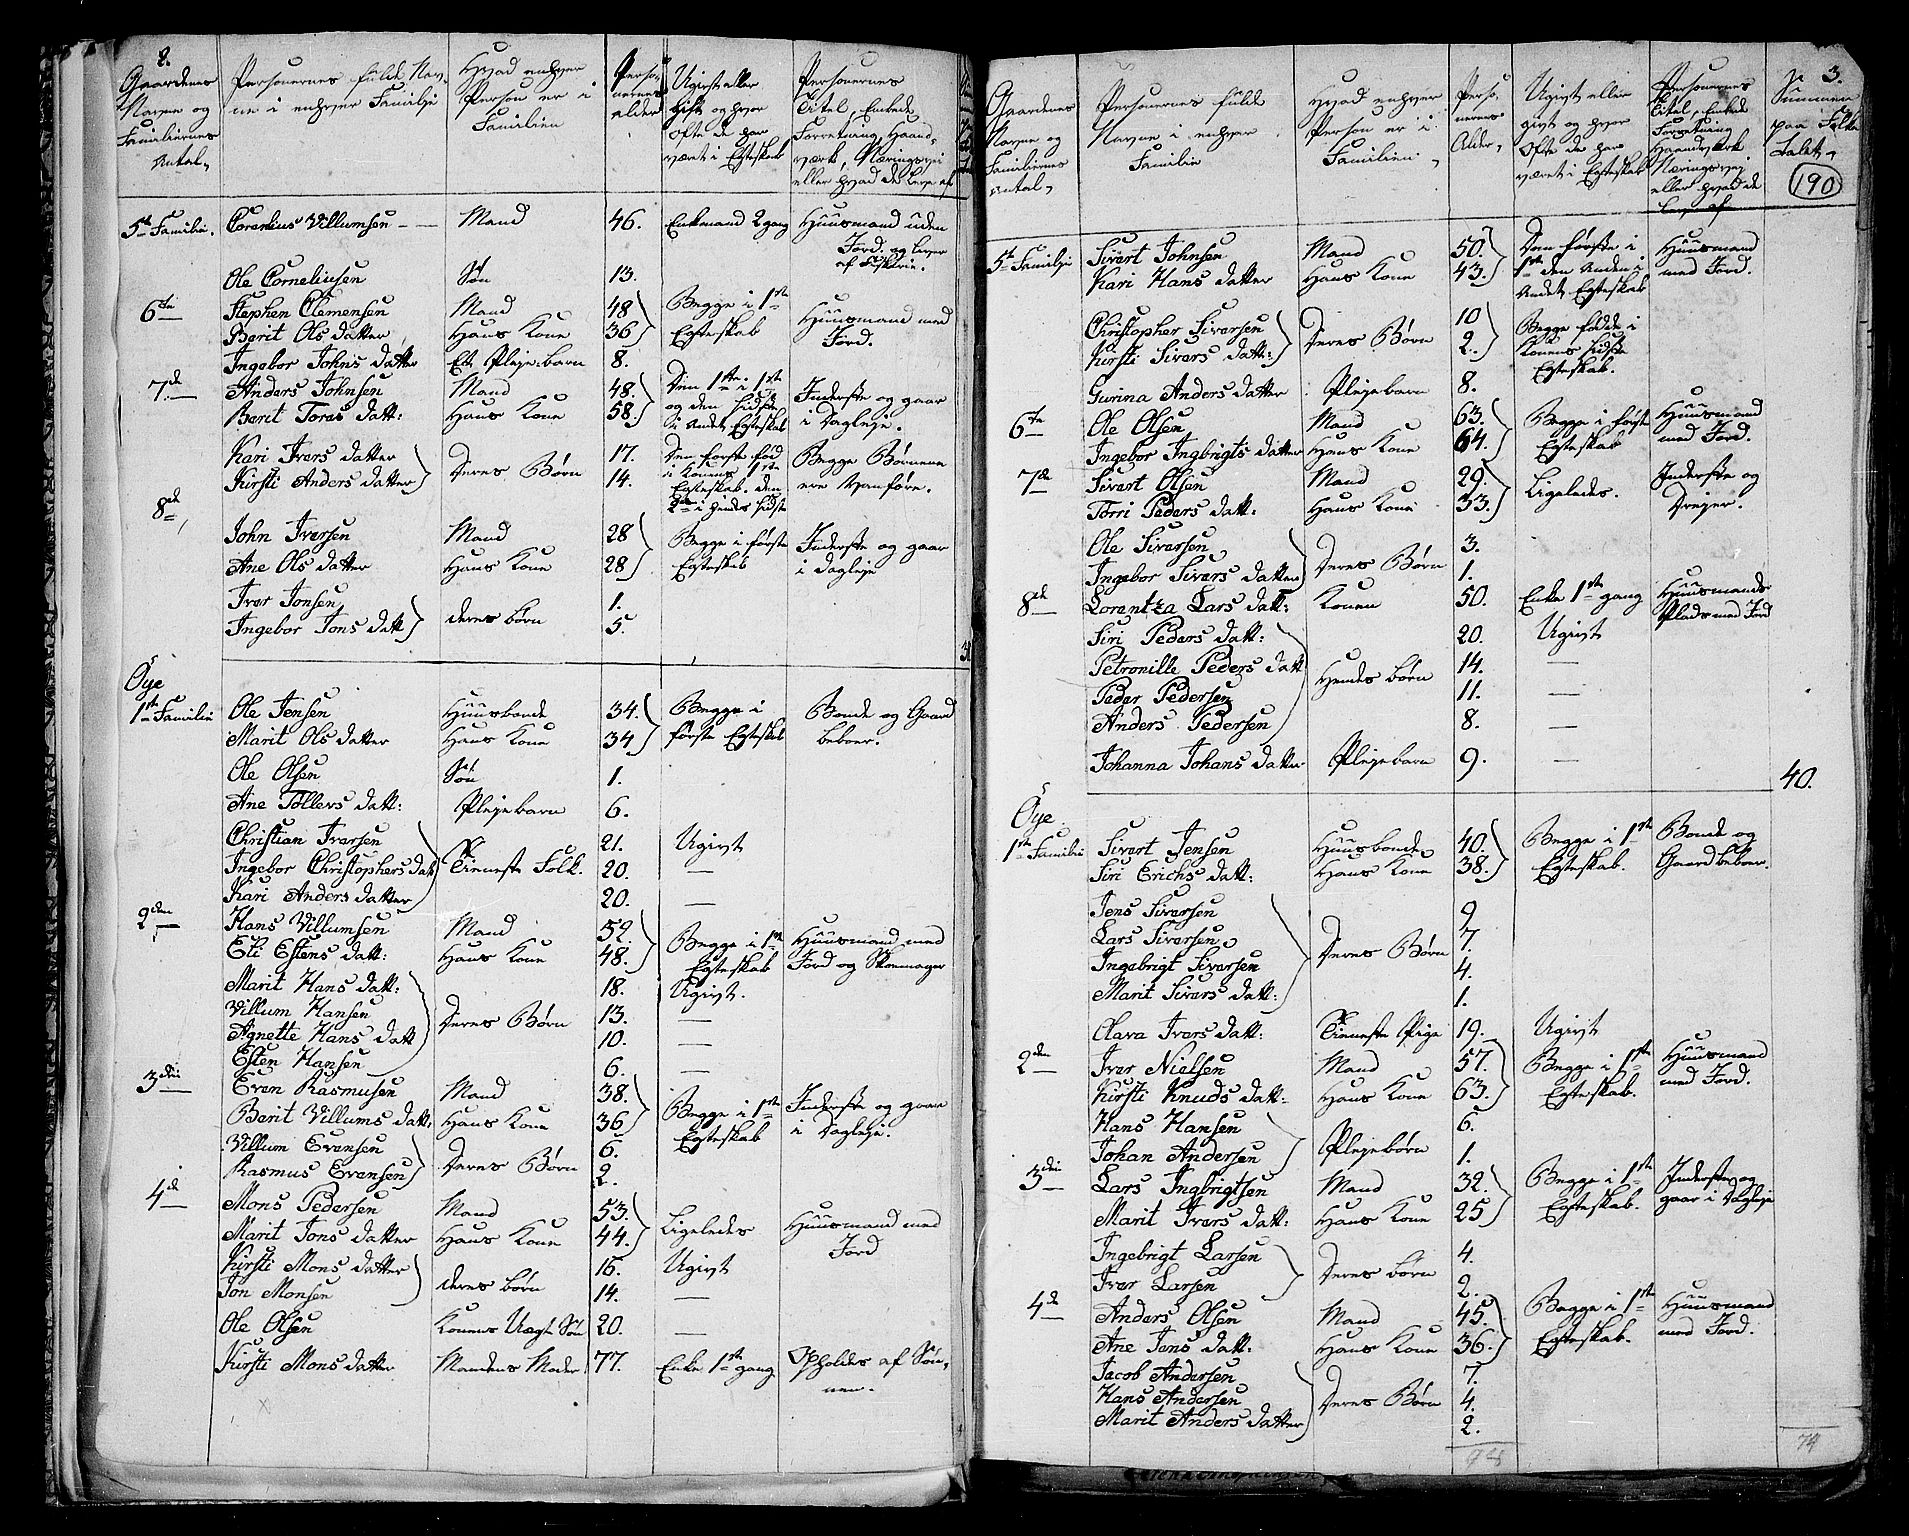 2.
Gaardenes Navne og Familiernes Antal
Personernes fulde Navne i enhver Familie
Hvad enhver Person er i Familien
Personernes alder
Ugivt eller gift og hvor ofte de har været i Egteskab
Personernes Titel, Embede Forretning, Haandværk, Næringsvei eller hvad de leve af
5te Familie. Cornelius Villumsen Mand 46. Enkemand 2 gang Huusmand uden Jord og lever af Fiskerie.
Ole Corneliusen Søn 13.
6te Stephen Clemensen Mand 48 Begge i 1ste Egteskab Huusmand med Jord.
Berit Ols datter Hans Kone 36
Ingebor Johns datter Et Plejebarn 8.
7de Anders Johnsen Mand 48. Den 1ste i 1ste og den sidste i Andet Egteskab Inderste og gaar i Dagleje.
Berit Tores datt: Hans Kone 58.
Kari Ivers datter Deres Børn 17. Den første fød i Konens 1ste Egteskab. den 2den i hendes sidste Begge Børnene ere Vanføre.
Kirsti Anders datter 14.
8de
John Iversen Mand 28 Begge i første Egteskab Inderste og gaar i Dagleje
Ane Ols datter Hans Kone 28
Iver Jonsen deres børn 1.
Ingebor Jons datt 5.
Øye
1ste Familie Ole Jensen Huusbonde 34. Begge i første Egteskab Bonde og Gaardbeboer.
Marit Ols datter Hans Kone 34
Ole Olsen Søn 1.
Ane Tollevs datt: Plejebarn 6.
Christian Iversen Tieneste Folk. 21. Ugivt
Ingebor Christophers datt 20. —
Kari Anders datter 20. —
2den Hans Villumsen Mand 52. Begge i 1ste Egteskab Huusmand med Jord og Skoemager
Eli Estens datt: Hans Kone 48.
Marit Hans datt: Deres Børn 18. Ugivt.
Villum Hansen 13. —
Agnette Hans datt 10. —
Esten Hansen 6. —
3die Even Rasmusen Mand 38. Begge i 1ste Egteskab Inderste og gaar i Dagleje.
Berit Villums datt. Hans Kone 36
Villum Evensen Deres Børn 6.
Rasmus Evensen 2.
4de Mons Pedersen Mand 53. Ligeledes Huusmand med Jord
Marit Jons datter Hans Kone 44.
Kirsti Mons datter deres børn 16. Ugivt
Jon Monsen 14. —
Ole Olsen Konens Uægte Søn 20. —
Kirsti Mons datter Mandens Moder 77. Enke 1ste gang Opholdes af Sønnen.
3.
Gaardenes Navne og Familiernes Antal
Personernes fulde Navne i enhver Familie
Hvad enhver Person er i Familien
Personernes Alder
Ugivt eller givt og hvor ofte de har været i Egteskab
Personernes Titel, Embede Forretning Haandværk Næringsvej eller hvad de leve af
Summen paa Folketalet
190
5te Familie Sivert Johnsen Mand 50. Den første i 1ste den Anden i Andet Egteskab Huusmand med Jord.
Kari Hans datter Hans Kone 43.
Christopher Siversen Deres Børn 10 Begge fødde i Konens sidste Egteskab.
Kirsti Sivers datt: 2.
Gurina Anders datter Plejebarn 8.
6te Ole Olsen Mand 63. Begge i første Egteskab Huusmand med Jord.
Ingebor Ingbrigts datter Hans Kone 64.
7de Sivert Olsen Mand 29. Ligeledes. Inderste og Drejer.
Torri Peders datt: Hans Kone 33.
Ole Siversen Deres Børn 3.
Ingebor Sivers datter 1.
8de Lorentza Lars datt: Konen 50. Enke 1ste gang Huusmands Plads med Jord
Siri Peders datt: Hendes børn 20. Ugivt
Petronille Peders datt 14. —
Peder Pedersen 11. —
Anders Pedersen 8. —
Johanna Johans datter Plejebarn 9. —
40.
Øye
1ste Familie Sivert Jensen Huusbonde 40. Begge i 1ste Egteskab. Bonde og Gaardbeboer.
Siri Erichs datt: Hans Kone 38.
Jens Siversen Deres Børn 9
Lars Siversen 7.
Ingebrigt Siversen 4.
Marit Sivers datt: 1.
Clara Ivers datt: Tieneste Pige 19. Ugivt
2den Iver Nielsen Mand 57. Begge i 1ste Egteskab. Huusmand med Jord.
Kirsti Knuds datt: Hans Kone 63.
Hans Hansen Plejebørn 6.
Johan Andersen 1.
3die Lars Ingbrigtsen Mand 32. Begge i 1ste Egteskab. Inderste og gaar i Dagleje
Marit Ivers datt: Hans Kone 25
Ingebrigt Larsen Deres børn 4.
Iver Larsen 2.
4de Anders Olsen Mand 45. Begge i 1ste Egteskab. Huusmand med Jord.
Ane Jens datt: Hans Kone 36.
Jacob Andersen Deres Børn 7.
Hans Andersen 4.
Marit Anders datter 2.
74